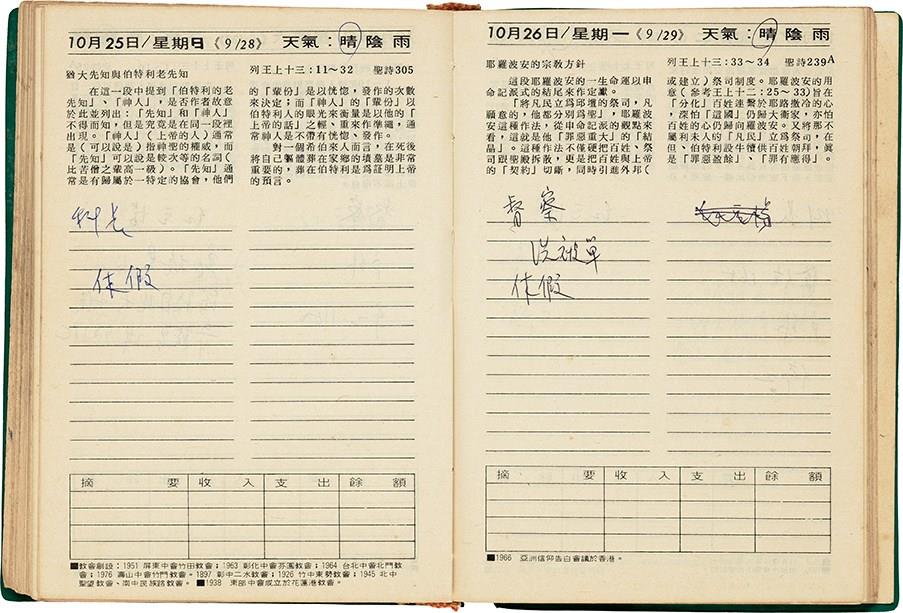 10月25日/星期日《9/28》 天氣：晴陰雨
猶大先知與伯特利老先知
列王上十三：11～32 聖詩305
在這一段中提到「伯特利的老
先知」、「神人」，是否作者故意
於此並列出：「先知」和「神人」
不得而知，但是究竟是在同一段裡
出現。「神人」（上帝的人）通常
是（可以說是）指神聖的權威，而
「先知」可以說是較次等的名詞（
比苦僧之輩高一級）。「先知」通
常是有歸屬於一特定的協會，他們
的「輩份」是以恍惚，發作的次數
來決定；而「神人」的「輩份」以
伯特利人的眼光來衡量是以他的「
上帝的話」之輕、重來作準繩，通
常神人是不帶有恍惚、發作。
對一個希伯來人而言，在死後
將自己軀體葬在家鄉的墳墓是非常
重要的，葬在伯特利是爲証明上帝
的預言。
科長
休假
摘要 收入 支出 餘額
■教會創設：1951 屏東中會竹田教會；1963 彰化中會芬園教會；1964 台北中會北門教
會；1976 壽山中會竹門教會。1897 彰中二水教會；1926 竹中東勢教會；1945 北中
聖望教會、南中民族路教會。■1938 東部中會成立於花蓮港教會。
10月26日/星期一《9/29》 天氣：晴陰雨
耶羅波安的宗敎方針
列王上十三：33～34 聖詩239A
這段耶羅波安的一生命運以申
命記派式的結尾來作定讞。
「將凡民立爲邱壇的祭司，凡
願意的，他都分別爲聖」，耶羅波
安這種作法，從申命記派的觀點來
看，這就是他「罪惡重大」的「結
晶」。這種作法不僅硬把百姓、祭
司跟聖殿拆散，更是把百姓與上帝
的「契約」切斷，同時引進外邦（
或建立）祭司制度。耶羅波安的用
意（參考王上十二：25～33）旨在
「分化」百姓連繫於耶路撒冷的心
，深怕「這國」仍歸大衞家，亦怕
百姓的心仍歸向羅波安。又將那不
屬利未人的「凡民」立爲祭司，在
但、伯特利設牛犢供百姓朝拜，眞
是「罪惡盈餘」、「罪有應得」。
督察
洗被單
休假
摘要 收入 支出 餘額
■1966 亞洲信仰告白會議於香港。